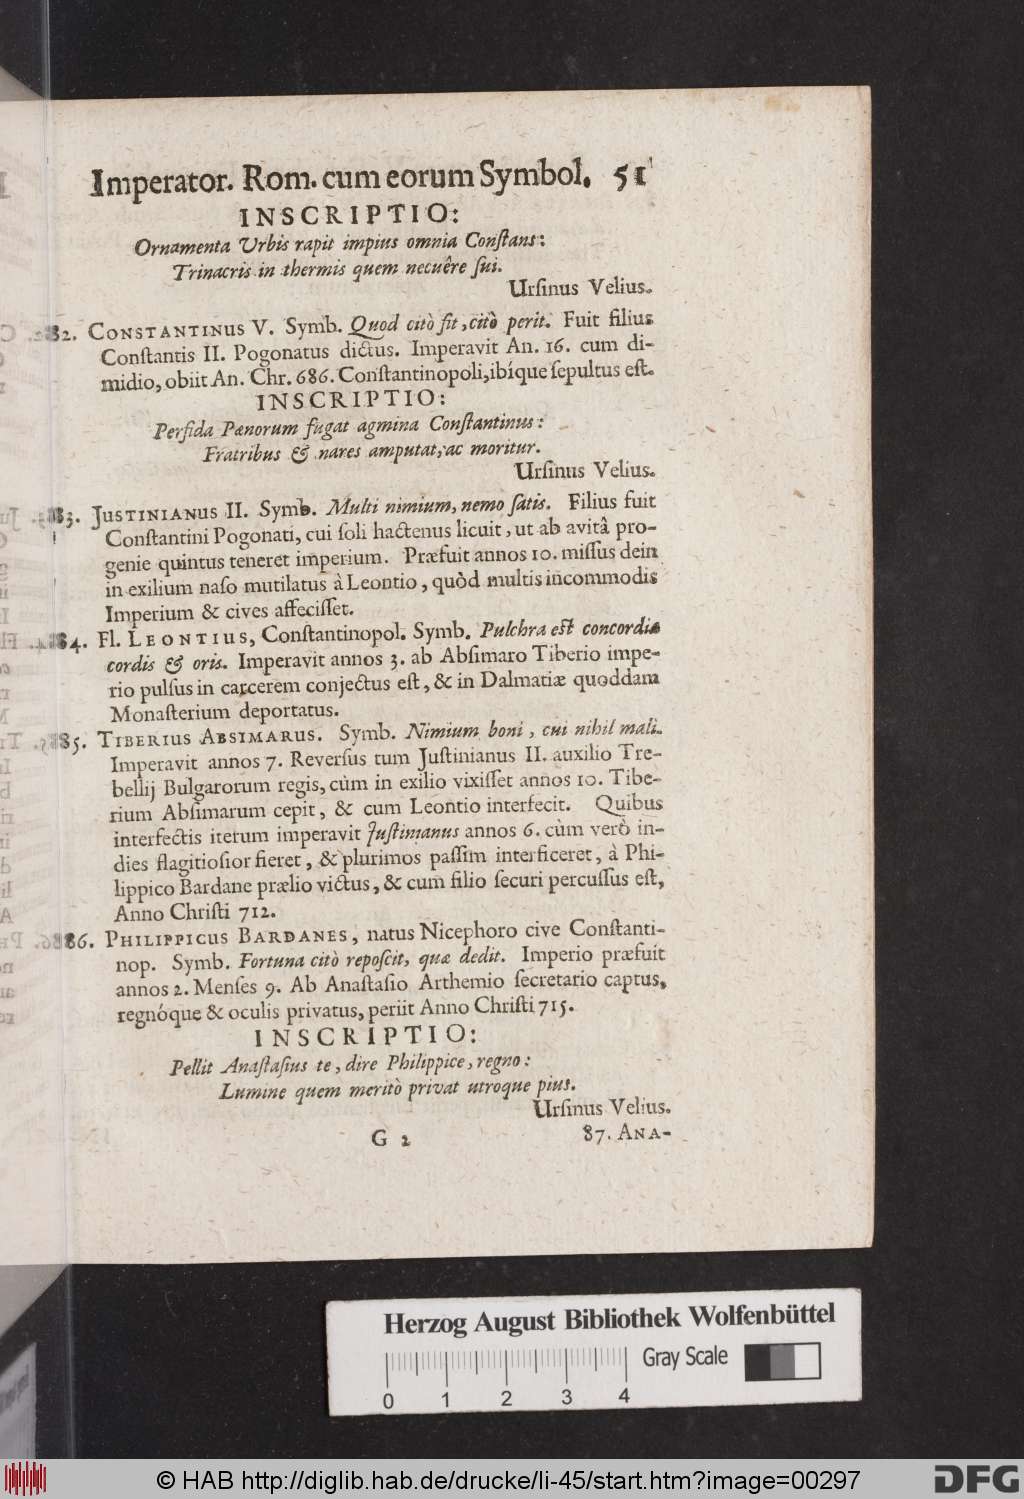 Imperator. Rom. cum eorum Symbol. 51
INSCRIPTIO:
Ornamenta Urbis rapit impius omnia Conſtans:
Trinacris in thermis quem necuêre ſui.
Urſinus Velius.
82. CONSTANTINUS V. Symb. Quod citò fit, citò perit. Fuit filius
Conſtantis II. Pogonatus dictus. Imperavit An. 16. cum di-
midio, obiit An. Chr. 686. Conſtantinopoli, ibíque ſepultus eſt.
INSCRIPTIO:
Perfida Pœnorum fugat agmina Conſtantinus:
Fratribus & nares amputat, ac moritur.
Urſinus Velius.
83. JUSTINIANUS II. Symb. Multi nimium, nemo ſatis. Filius fuit
Conſtantini Pogonati, cui ſoli hactenus licuit, ut ab avitâ pro-
genie quintus teneret imperium. Præfuit annos 10. miſſus dein
in exilium naſo mutilatus à Leontio, quòd multis incommodis
Imperium & cives affeciſſet.
84. Fl. LEONTIUS, Conſtantinopol. Symb. Pulchra eſt concordia
cordis & oris. Imperavit annos 3. ab Abſimaro Tiberio impe-
rio pulſus in carcerem conjectus eſt, & in Dalmatiæ quoddam
Monaſterium deportatus.
85. TIBERIUS ABSIMARUS. Symb. Nimium boni, cui nihil mali.
Imperavit annos 7. Reverſus tum Juſtinianus II. auxilio Tre-
bellij Bulgarorum regis, cùm in exilio vixiſſet annos 10. Tibe-
rium Abſimarum cepit, & cum Leontio interfecit. Quibus
interfectis iterum imperavit Juſtinianus annos 6. cùm verò in-
dies flagitioſior fieret, & plurimos paſſim interficeret, à Phi-
lippico Bardane prælio victus, & cum filio ſecuri percuſſus eſt,
Anno Chriſti 712.
86. PHILIPPICUS BARDANES, natus Nicephoro cive Conſtanti-
nop. Symb. Fortuna citò repoſcit, quæ dedit. Imperio præfuit
annos 2. Menſes 9. Ab Anaſtaſio Arthemio ſecretario captus,
regnóque & oculis privatus, periit Anno Chriſti 715.
INSCRIPTIO:
Pellit Anaſtaſius te, dire Philippice, regno:
Lumine quem meritò privat utroque pius.
Urſinus Velius.
G 2 87. ANA-
Herzog August Bibliothek Wolfenbüttel
Gray Scale
0 1 2 3 4
© HAB http://diglib.hab.de/drucke/li-45/start.htm?image=00297
DFG